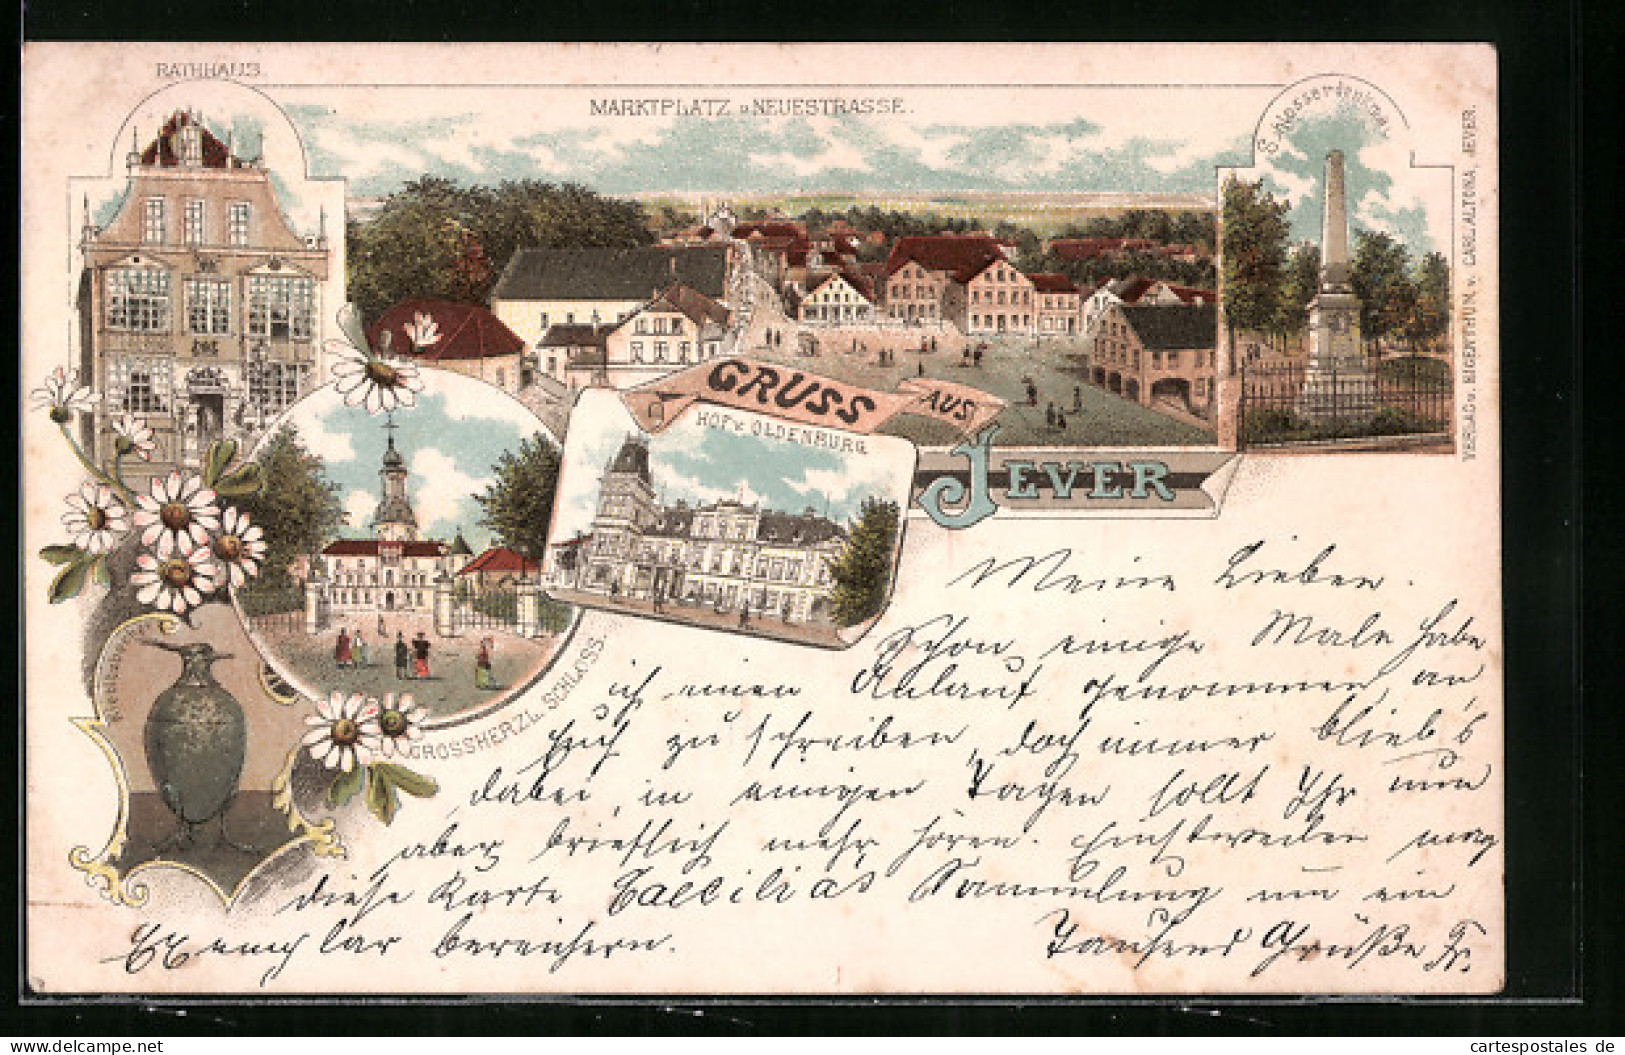 RATHHAUS.
MARKTPLATZ u NEUESTRASSE.
Schlosserdenkmal
VERLAG u. EIGENTHUM v. CARL ALTONA, JEVER.
GRUSS
AUS
JEVER
HOF v. OLDENBURG
GROSSHERZL. SCHLOSS.
Meine Lieben.
Schon einige Male habe
ich einen Anlauf genommen, an
Euch zu schreiben, doch immer blieb's
dabei, in einigen Tagen sollt Ihr nun
aber brieflich mehr hören. Einstweilen mag
diese Karte Caecilia's Sammlung um ein
Exemplar bereichern.
Tausend Grüße Fr.
cartespostales.com
cartespostales de